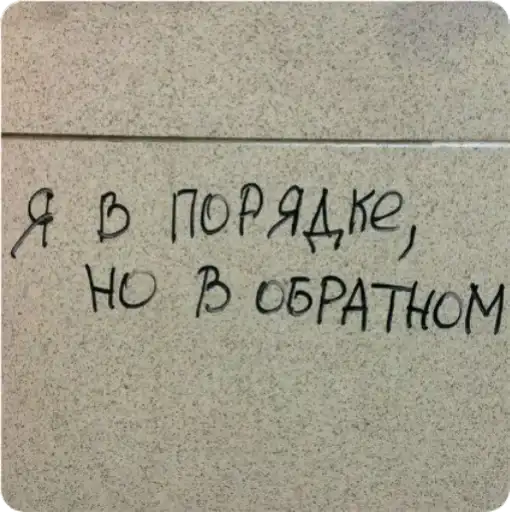 Я В ПОРЯДКЕ,
НО В ОБРАТНОМ